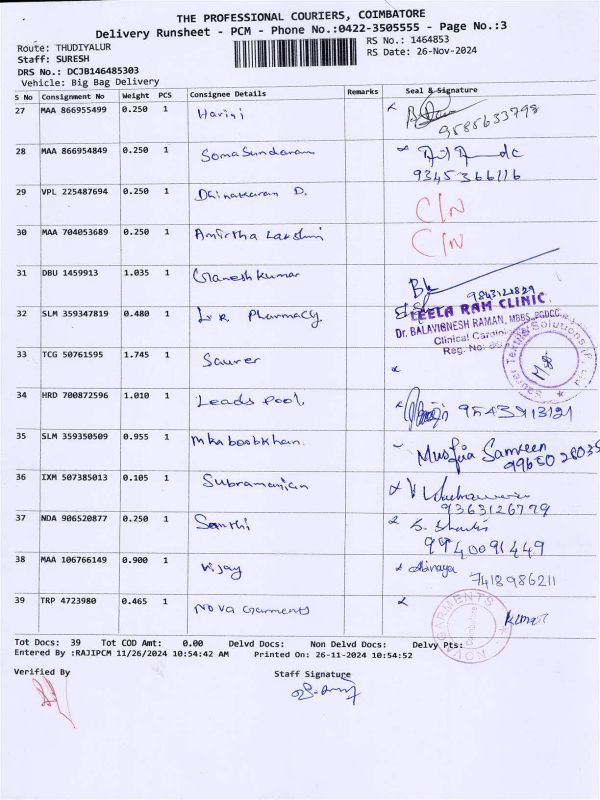 THE PROFESSIONAL COURIERS, COIMBATORE
Delivery Runsheet - PCM - Phone No.:0422-3505555 - Page No.:3
Route: THUDIYALUR
RS No.: 1464853
Staff: SURESH
RS Date: 26-Nov-2024
DRS No.: DCJB146485303
Vehicle: Big Bag Delivery
S No Consignment No Weight PCS Consignee Details Remarks Seal & Signature
27 MAA 866955499 0.250 1 Harini
9585633798
28 MAA 866954849 0.250 1 Somasundaram
9345366116
29 VPL 225487694 0.250 1 Dhinakaran D. C/N
30 MAA 704053689 0.250 1 Amirtha Lakshmi C/N
31 DBU 1459913 1.035 1 Ganesh Kumar
9843121829
32 SLM 359347819 0.480 1 Pharmacy
LEELA RAM CLINIC
Dr. BALAVIGNESH RAMAN, MBBS, PGDCC
Clinical Cardiol
Reg. No:
33 TCG 50761595 1.745 1 Saurer
Saurer Textile Solutions (P) Ltd
34 HRD 700872596 1.010 1 Leads Pool
35 SLM 359350509 0.955 1 Mkaboobkhan.
36 IXM 507385013 0.105 1 Subramanian
9363126779
37 NDA 906520877 0.250 1 Santhi
9940091449
38 MAA 106766149 0.900 1 Vijay Abinaya
7418986211
39 TRP 4723980 0.465 1 Nova Garments Kumar
NOVA GARMENTS
Tot Docs: 39 Tot COD Amt: 0.00 Delvd Docs: Non Delvd Docs: Delvy Pts:
Entered By :RAJIPCM 11/26/2024 10:54:42 AM Printed On: 26-11-2024 10:54:52
Verified By Staff Signature